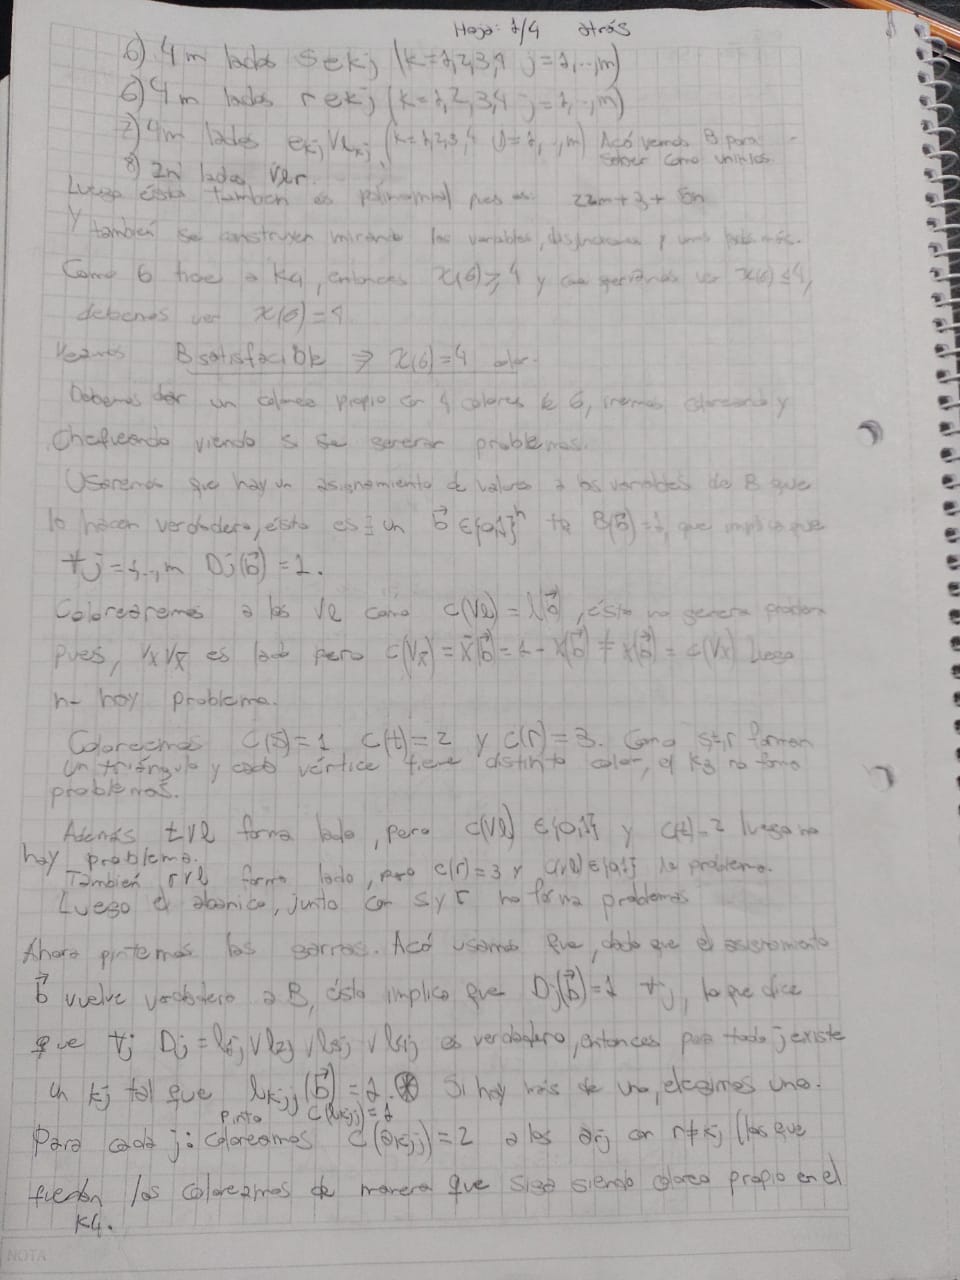 Hoja: 1/4 atrás
6) 4m lados sekj (k=1,2,3,4 j=1,..,m)
6) 4m lados rekj (k=1,2,3,4 j=1,..,m)
7) 4m lados ekj Vlkj (k=1,2,3,4 j=1,..,m) Acá vemos B para
saber como unirlos.
8) 2n lados Vlr.
Luego ésta también es polinomial pues es 22m+3+5n
Y también se construyen mirando las variables, disjunciones y
Como G trae a K4, entonces χ(G)≥4 y como queríamos ver χ(G)≤4,
debemos ver χ(G)=4
Veamos B satisfacible ⇒ χ(G)=4
Debemos dar un coloreo propio con 4 colores de G, iremos coloreando y
chequeando viendo si se generan problemas.
Usaremos que hay un asignamiento de valores a las variables de B que
lo hacen verdadero, ésto es ∃ un b⃗ ∈{0,1}ⁿ tq B(b⃗)=1, que implica que
∀j=1,..,m Dj(b⃗)=1.
Colorearemos a los Vl como c(Vl)=l(b⃗), ésto no genera problema
pues, VxVx̄ es lado pero c(Vx̄)=x̄(b⃗)=1-x(b⃗)≠x(b⃗)=c(Vx) luego
no hay problema.
Coloreamos c(s)=1 c(t)=2 y c(r)=3. Como s,t,r forman
un triángulo y cada vértice tiene distinto color, el K3 no forma
problemas.
Además tVl forma lado, pero c(Vl)∈{0,1} y c(t)=2 luego no
hay problema.
También rVl forma lado, pero c(r)=3 y c(Vl)∈{0,1} no problema.
Luego el abanico, junto con s y r no forma problemas
Ahora pintemos las garras. Acá usamos que, dado que el asignamiento
b⃗ vuelve verdadero a B, ésto implica que Dj(b⃗)=1 ∀j, lo que dice
que ∀j Dj=l1j∨l2j∨l3j∨l4j es verdadero, entonces para todo j existe
un kj tal que lkjj(b⃗)=1. Si hay más de uno, elegimos uno.
Pinto c(lkjj)=1
Para cada j: coloreamos c(akjj)=2 a los arj con r≠kj (los que
quedan los coloreamos de manera que siga siendo coloreo propio en el
K4.
NOTA